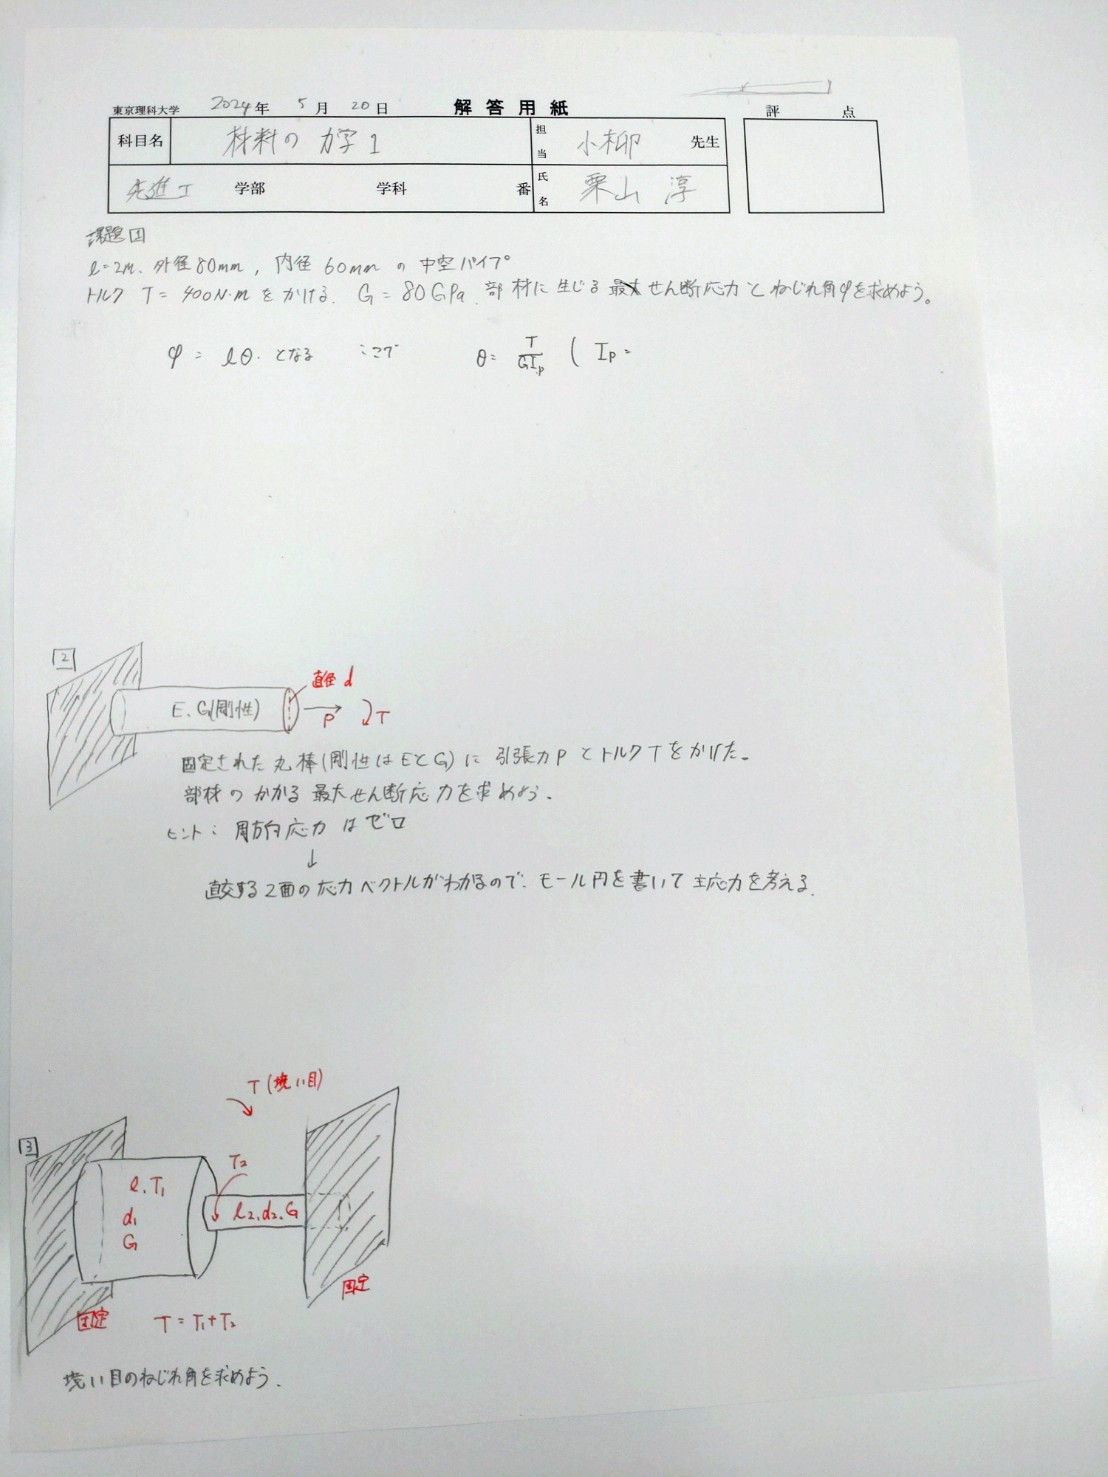 東京理科大学 2024年 5月 20日 解答用紙 評点
科目名 材料の力学1 担当 小柳 先生
先進工 学部 学科 番 氏名 栗山 淳
課題1
l=2m. 外径80mm, 内径60mm の中空パイプ
トルク T= 400N·mをかける. G=80GPa. 部材に生じる最大せん断応力とねじれ角φを求めよう。
φ = lθ. となる ここで θ= T/GIp ( Ip =
2
直径 d
E、G(剛性)
P T
固定された丸棒(剛性はEとG)に引張力PとトルクTをかけた。
部材のかかる最大せん断応力を求めよう.
ヒント: 周方向応力はゼロ
↓
直交する2面の応力ベクトルがわかるので、モール円を書いて主応力を考える.
T(境い目)
3
T2
l, T1
d1
G
l2, d2, G
固定
固定
T = T1+T2
境い目のねじれ角を求めよう.